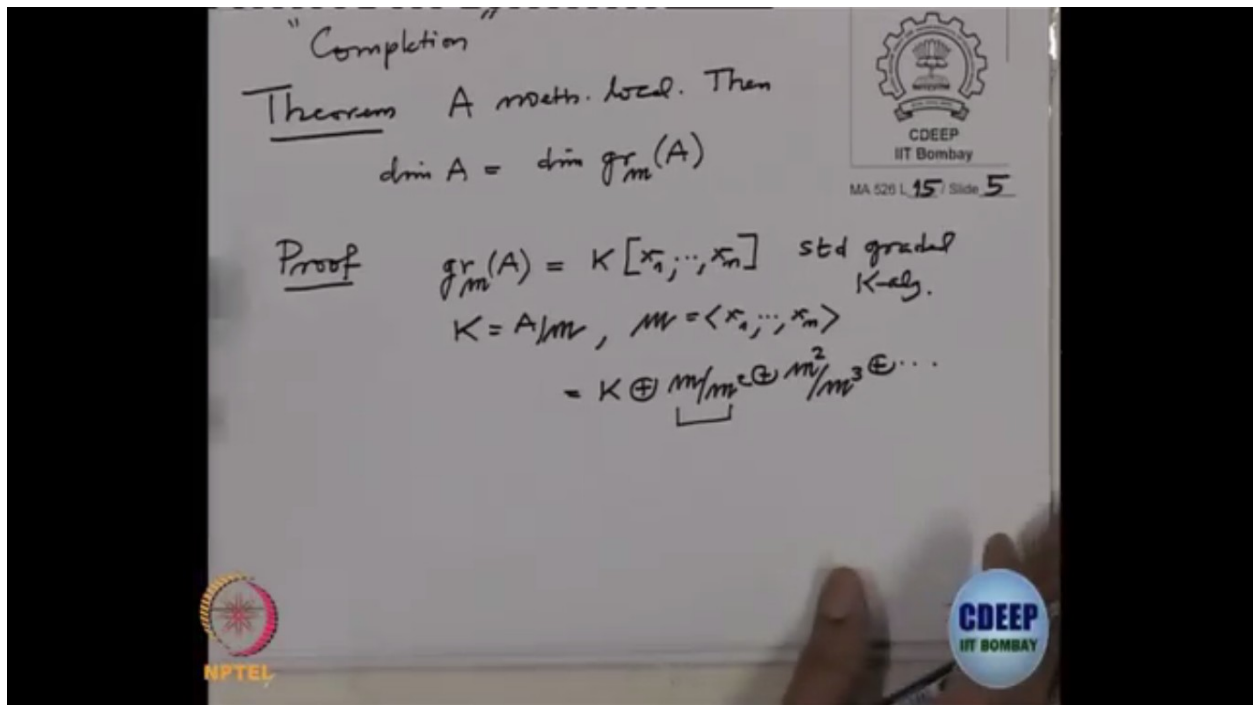 "Completion"
Theorem A noeth. local. Then
dim A = dim gr_m(A)
CDEEP
IIT Bombay
MA 526 L 15 / Slide 5
Proof gr_m(A) = K[x̄_1, ..., x̄_n] std graded
K-alg.
K = A/m, m = <x_1, ..., x_n>
= K ⊕ m/m^2 ⊕ m^2/m^3 ⊕ ...
NPTEL
CDEEP
IIT BOMBAY